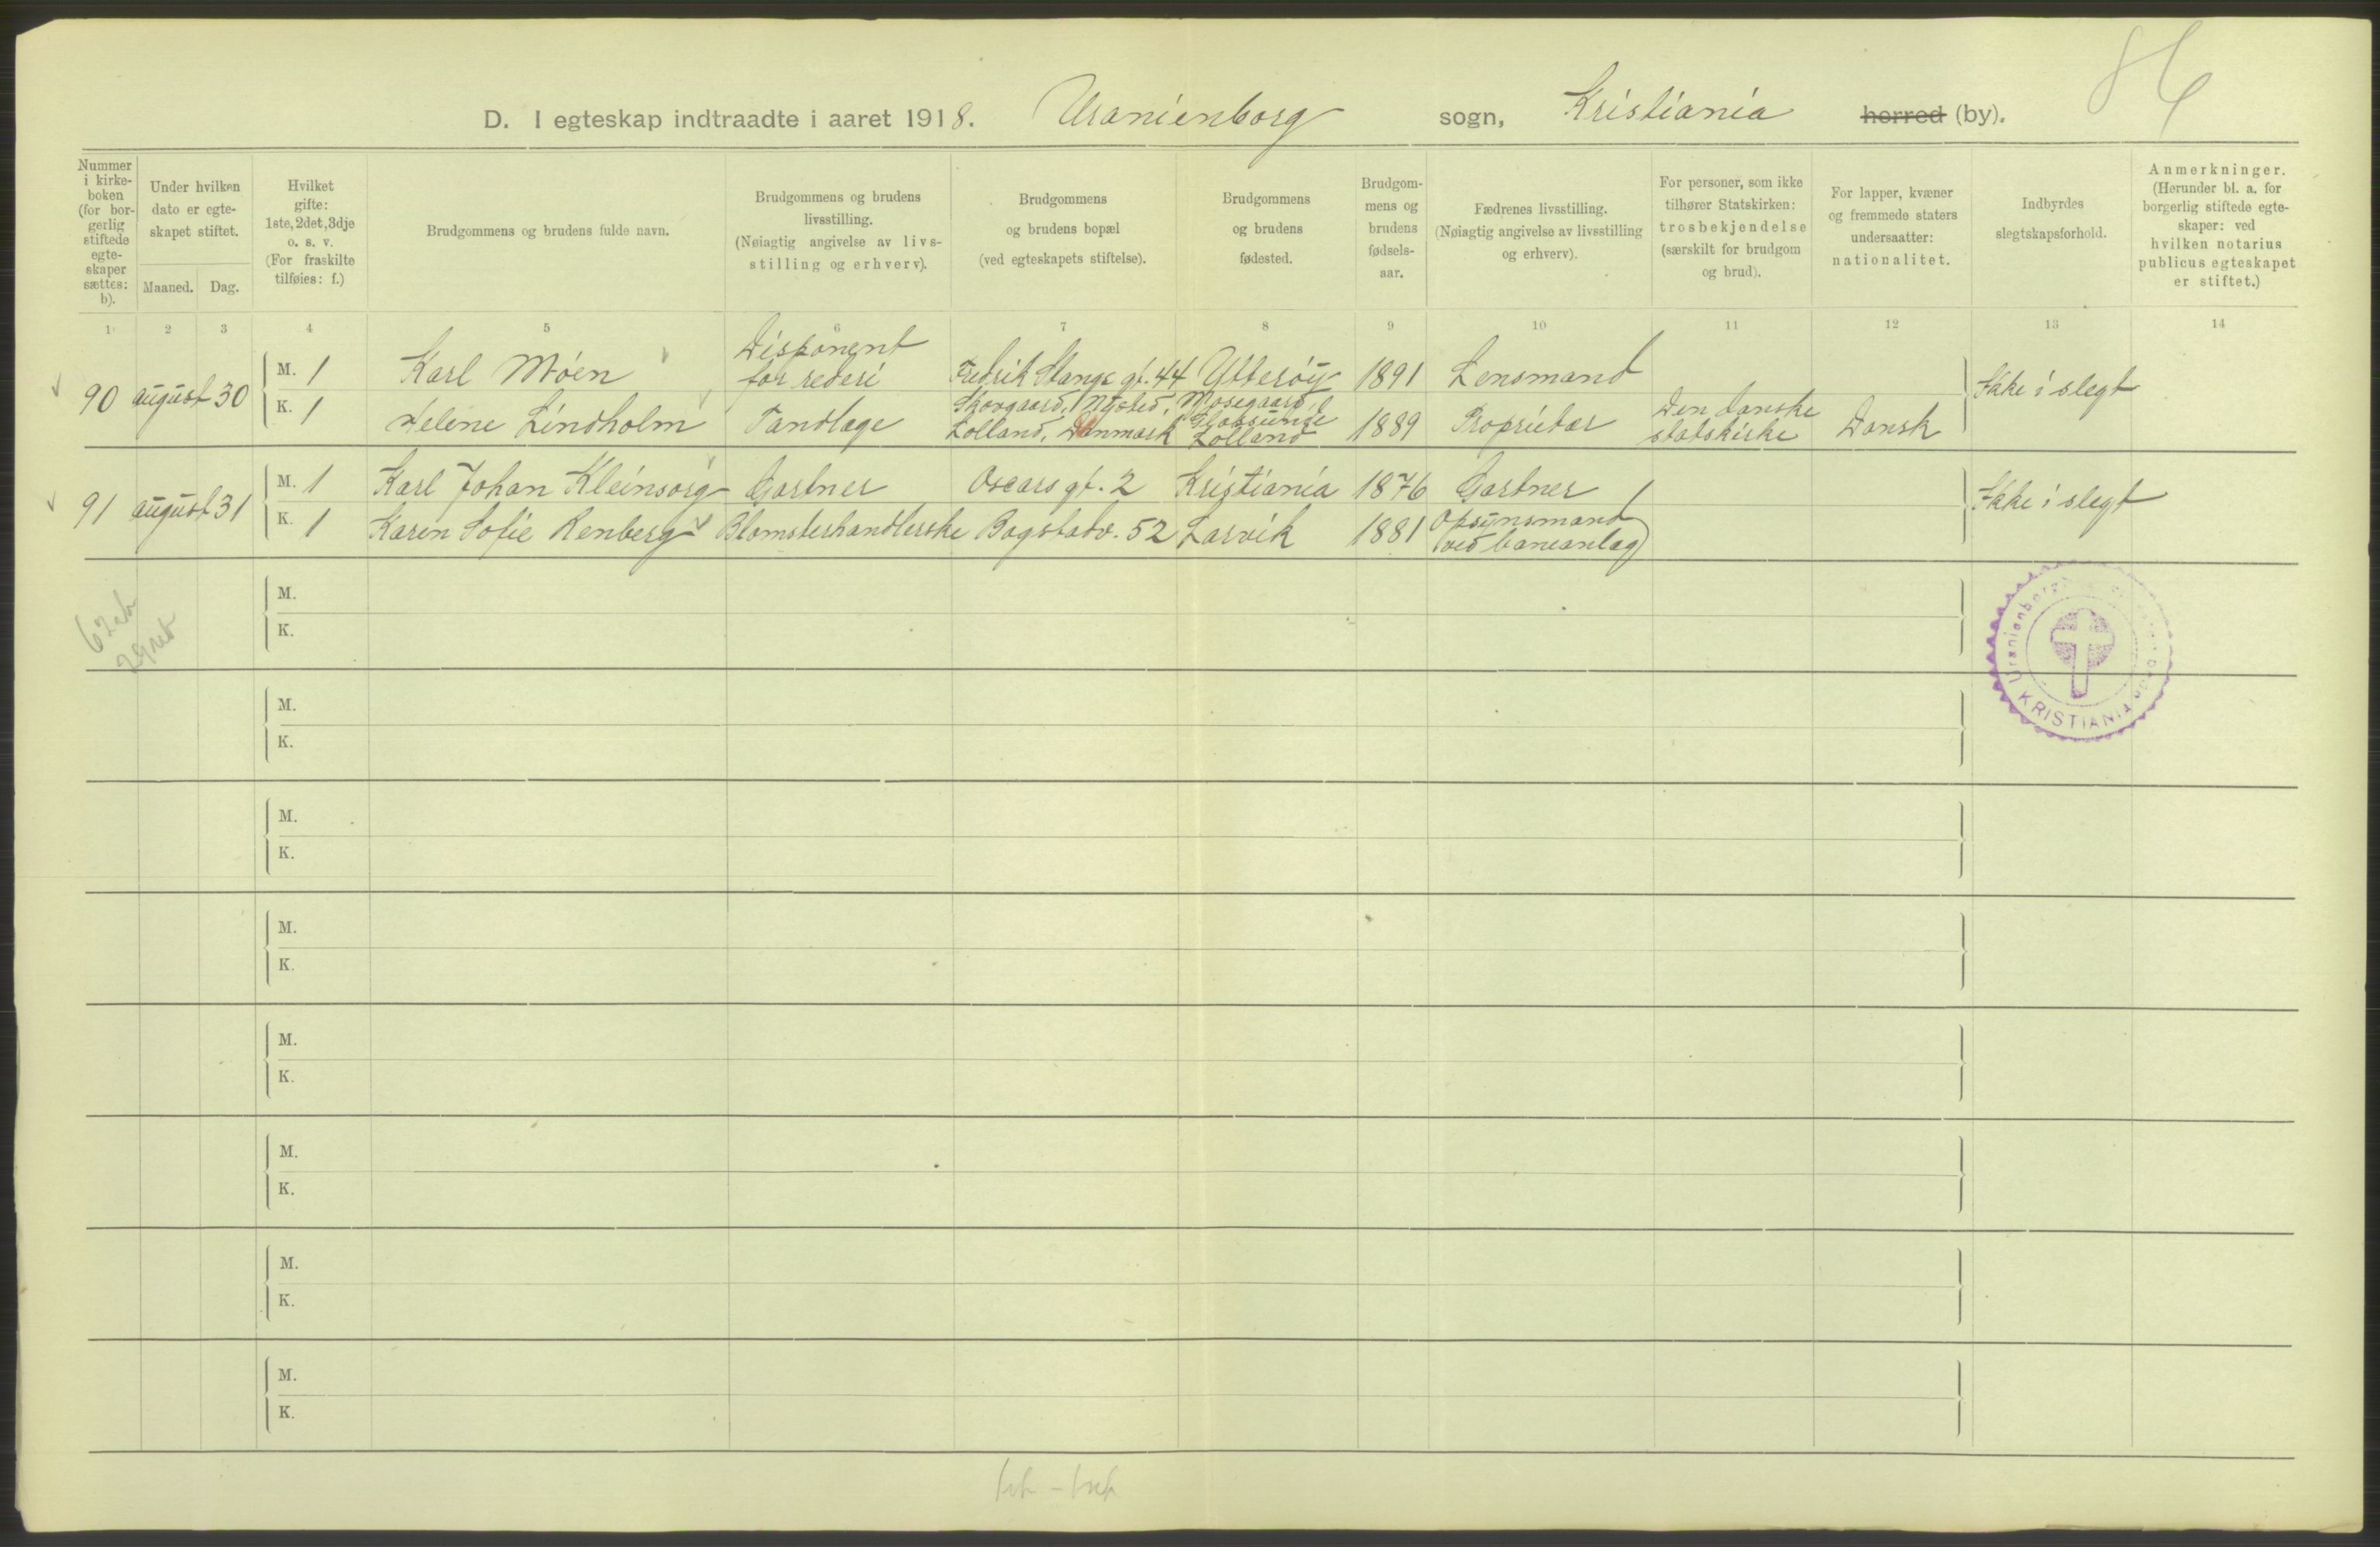 86
D. I egteskap indtraadte i aaret 1918. Uranienborg sogn, Kristiania herred (by).
Nummer i kirke-boken (for bor-gerlig stiftede egte-skaper sættes: b).
Under hvilken dato er egte-skapet stiftet.
Maaned. Dag.
Hvilket gifte: 1ste, 2det, 3dje o. s. v. (For fraskilte tilføies: f.)
Brudgommens og brudens fulde navn.
Brudgommens og brudens livsstilling. (Nøiagtig angivelse av livs-stilling og erhverv).
Brudgommens og brudens bopæl (ved egteskapets stiftelse).
Brudgommens og brudens fødested.
Brudgom-mens og brudens fødsels-aar.
Fædrenes livsstilling. (Nøiagtig angivelse av livsstilling og erhverv).
For personer, som ikke tilhører Statskirken: trosbekjendelse (særskilt for brudgom og brud).
For lapper, kvæner og fremmede staters undersaatter: nationalitet.
Indbyrdes slegtskapsforhold.
Anmerkninger. (Herunder bl. a. for borgerlig stiftede egte-skaper: ved hvilken notarius publicus egteskapet er stiftet.)
1 2 3 4 5 6 7 8 9 10 11 12 13 14
90 august 30
M. 1 Karl Moen Disponent for rederi Fredrik Stangs gt. 44 Ytterøy 1891 Lensmand
K. 1 Helene Lindholm Tandlæge Skovgaard, Nysted, Lolland, Danmark Mosegaard, Lolland 1889 Proprietær Den danske statskirke Dansk
Ikke i slegt
91 august 31
M. 1 Karl Johan Kleinsorg Gartner Oscars gt. 2 Kristiania 1876 Gartner
K. 1 Karin Sofie Renberg Blomsterhandlerske Bogstadv. 52 Larvik 1881 Opsynsmand (ved baneanlæg)
Ikke i slegt
M.
K.
M.
K.
M.
K.
M.
K.
M.
K.
M.
K.
M.
K.
M.
K.
Uranienborg
KRISTIANIA